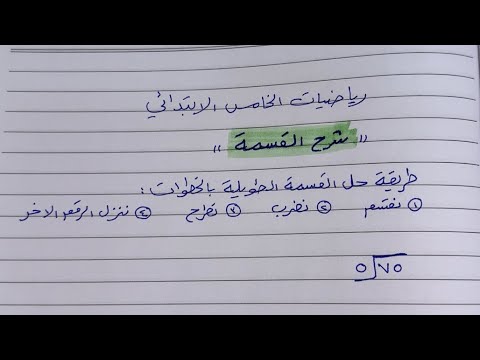 رياضيات الخامس الابتدائي
" شرح القسمة "
طريقة حل القسمة الطويلة بالخطوات :
١ نقسم ٢ نضرب ٣ نطرح ٤ ننزل الرقم الاخر
٥ ٧٥